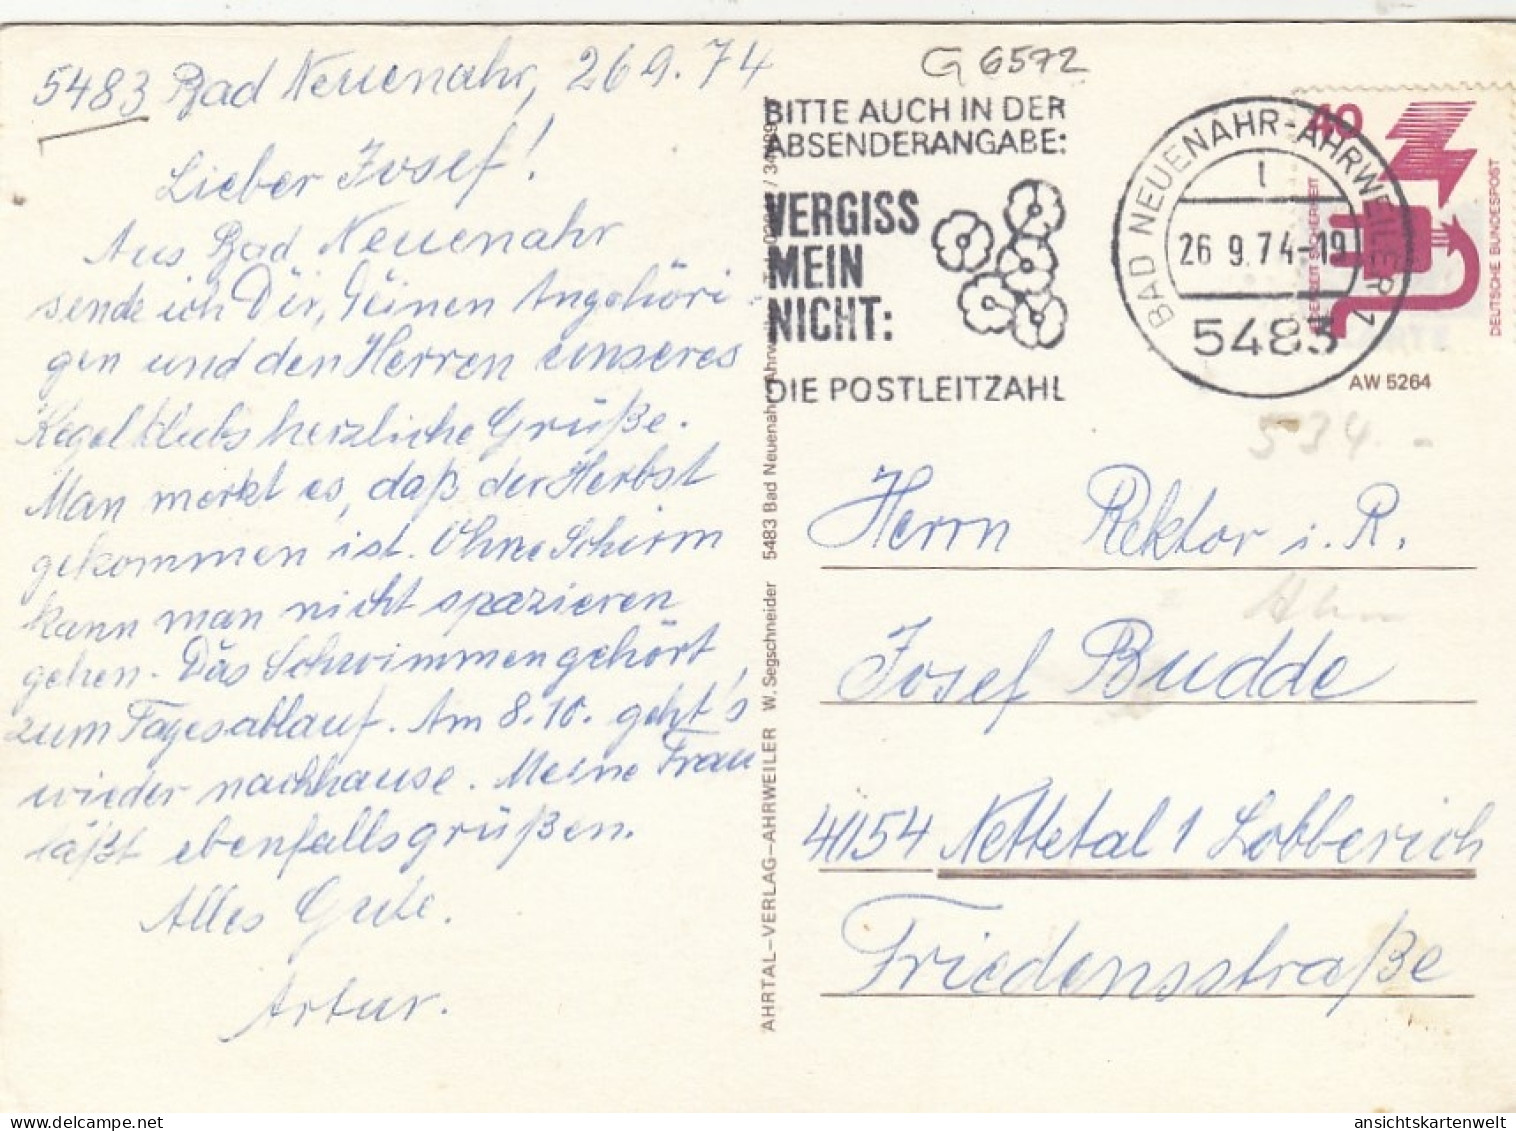 5483 Bad Neuenahr, 26 9. 74
Lieber Josef!
Aus Bad Neuenahr
sende ich Dir, Deinen Angehöri-
gen und den Herren unseres
Kegelklubs herzliche Grüße.
Man merkt es, daß der Herbst
gekommen ist. Ohne Schirm
kann man nicht spazieren
gehen. Das Schwimmen gehört
zum Tagesablauf. Am 8.10. geht's
wieder nachhause. Meine Frau
läßt ebenfalls grüßen.
Alles Gute.
Artur.
G 6572
BITTE AUCH IN DER
ABSENDERANGABE:
VERGISS
MEIN
NICHT:
DIE POSTLEITZAHL
BAD NEUENAHR-AHRWEILER 1
26 9.74-19
5483
40
DEUTSCHE BUNDESPOST
AW 5264
534.-
AHRTAL-VERLAG-AHRWEILER W. Segschneider 5483 Bad Neuenahr-Ahrweiler
Herrn Rektor i. R.
Josef Budde
4154 Nettetal 1 Lobberich
Friedensstraße
delcampe.net
ansichtskartenwelt